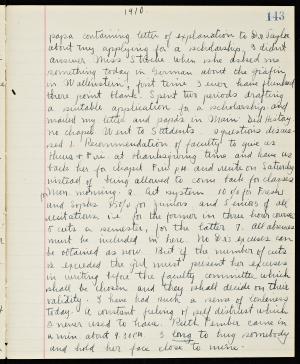 1910
143
papa containing letter of explanation to Dr. Taylor
about my applying for a scholarship, & didn't
answer Miss Stache when she asked me
something today in German about the gräfin
in Wallenstein, first time I ever have flunked
there point blank. Spent two periods drafting
a suitable application for a scholarship and
mailed my letter and papa's in Main. Did history
no chapel. Went to Students 2 questions discus-
sed 1. Recommendation of faculty to give us
Thurs & Fri. at thanksgiving time and have us
back here for chapel Fri. P.M. and recit on Saturday
instead of being allowed to come back for classes
Mon. morning. 2. Cut system 10% for Fresh
and Sophs 8% for juniors and Seniors of all
recitations, i.e. for the former in three hour course
5 cuts a semester, for the latter 7. All absences
must be included in here. No Dr's excuses can
be obtained as now. But if the number of cuts
is exceeded the girl must present her excuses
in writing before the faculty committee which
shall be chosen and they shall decide on their
validity. I have had such a sense of loneliness
today. A constant feeling of self distrust which
I never used to have. Ruth Pember came in
a min about 9:30 PM. I long to hug somebody
and hold her face close to mine.